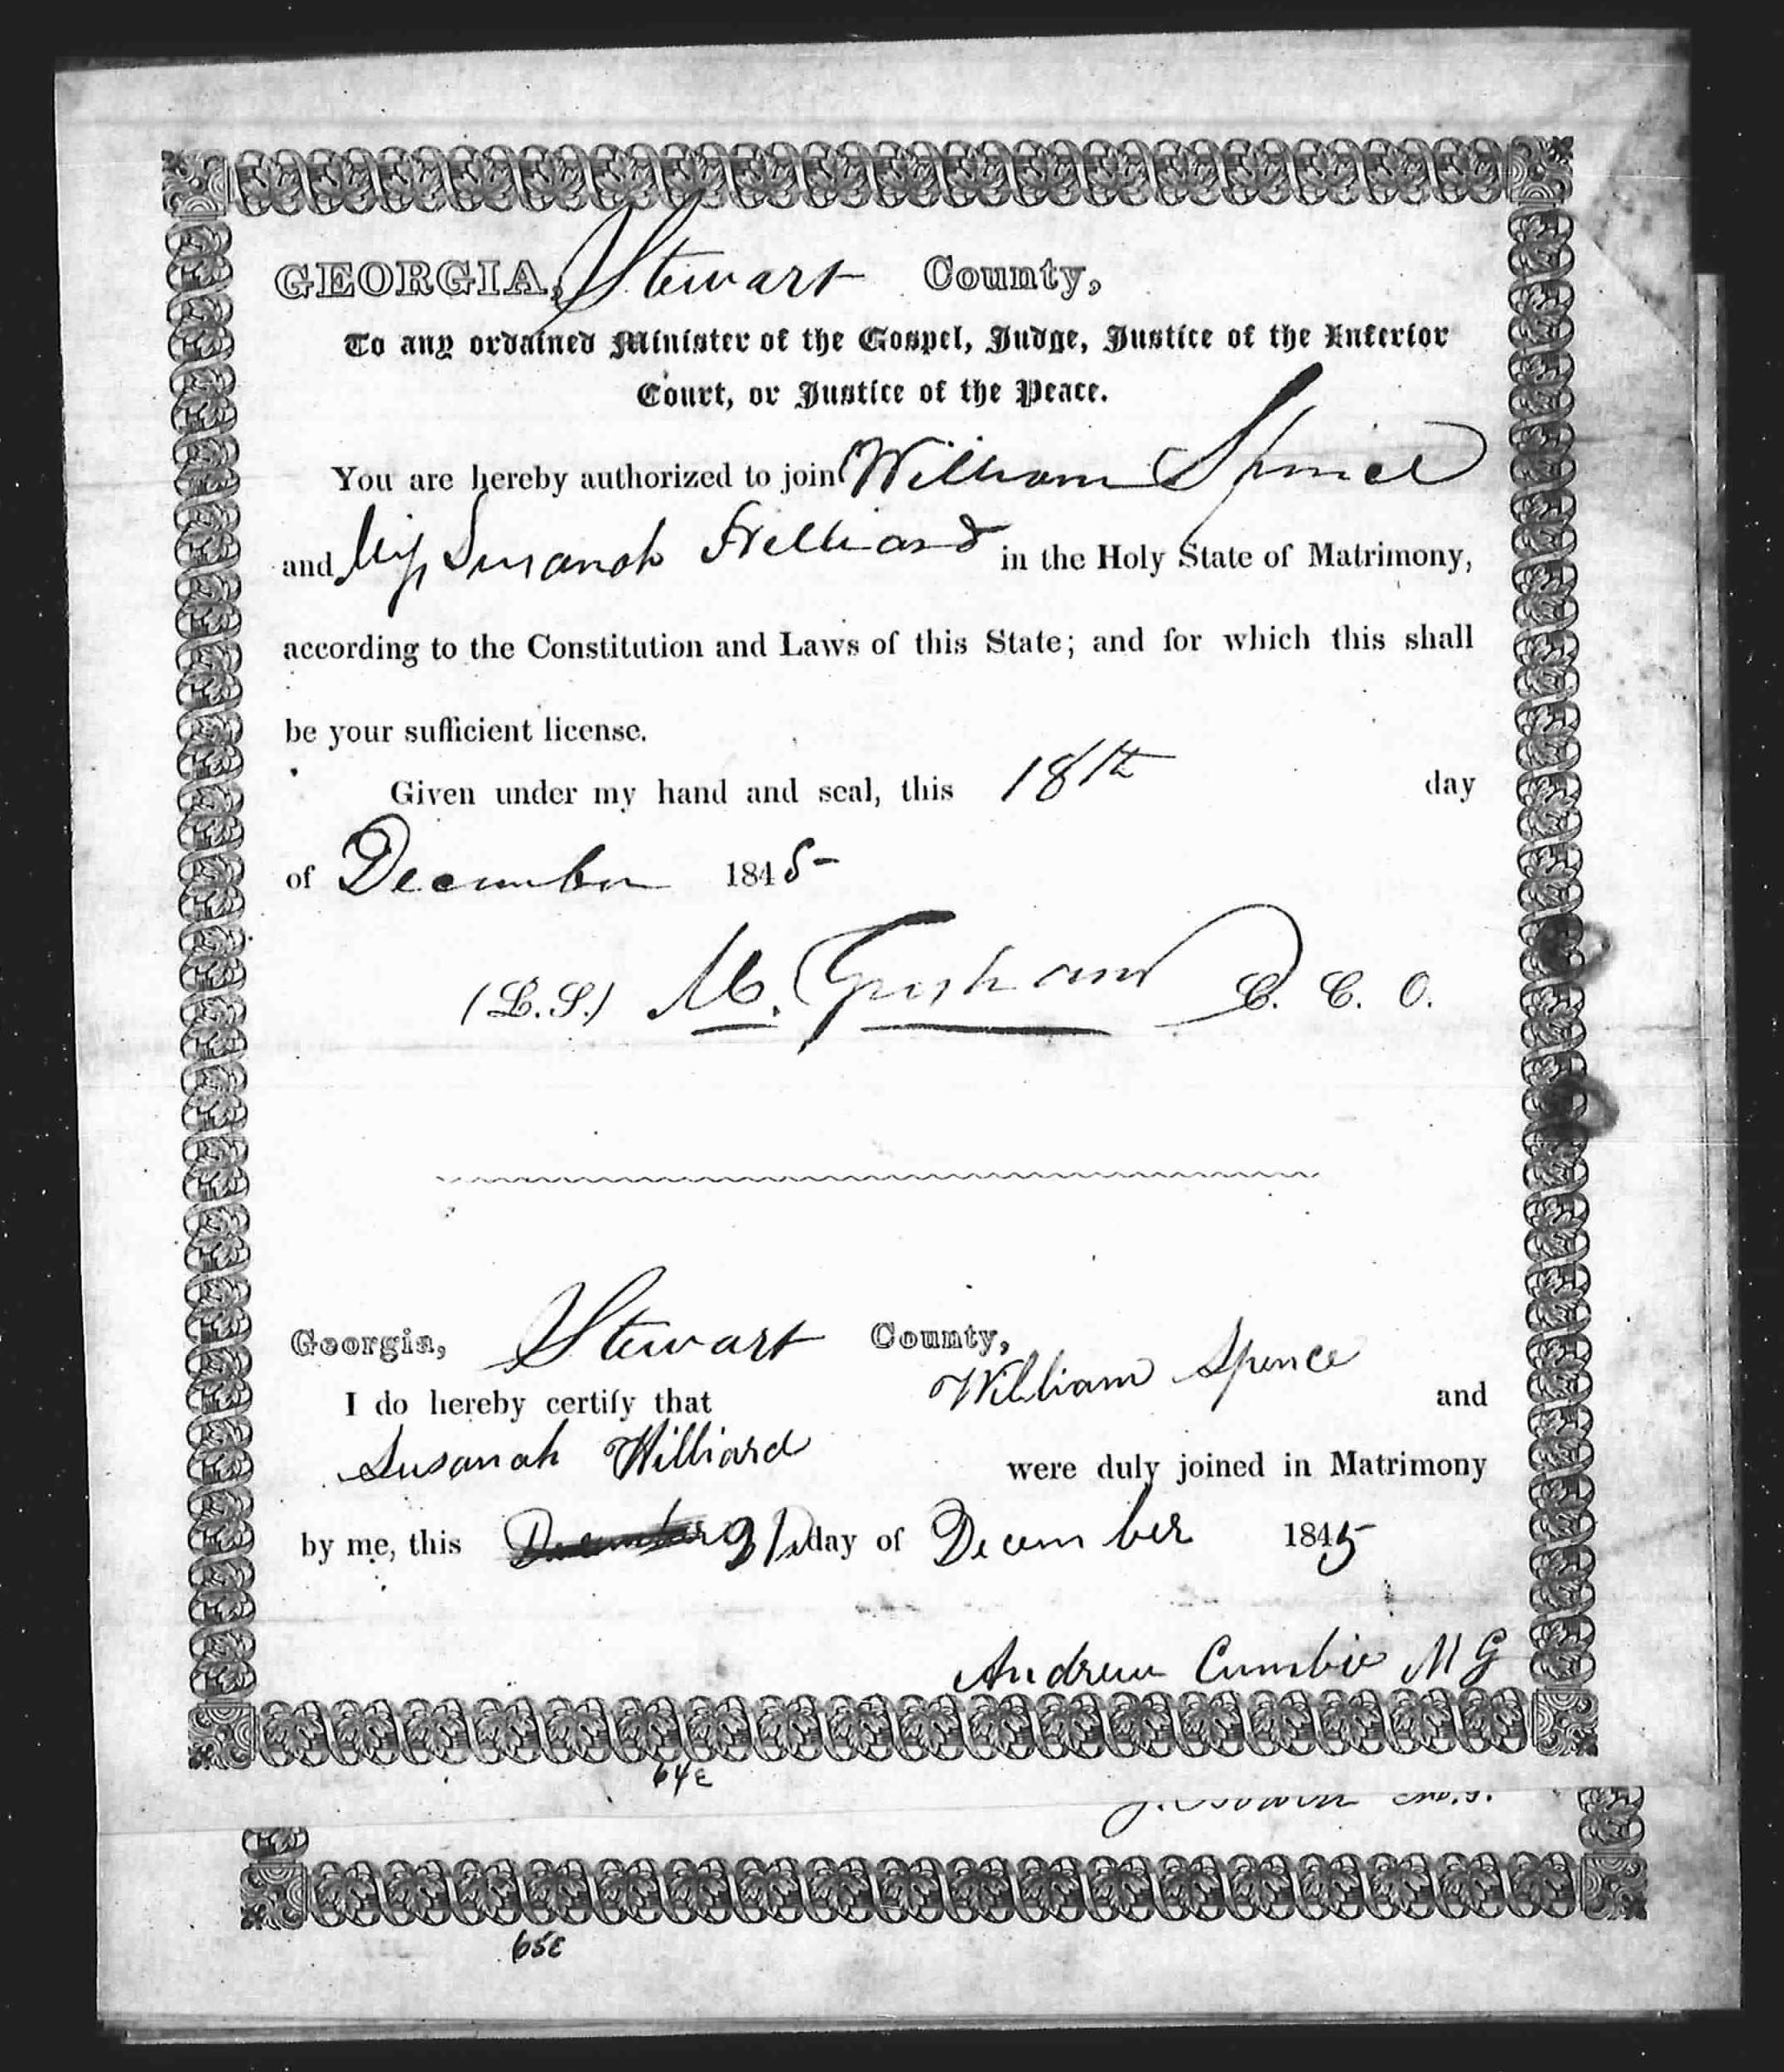 GEORGIA, Stewart County,
To any ordained Minister of the Gospel, Judge, Justice of the Inferior
Court, or Justice of the Peace.
You are hereby authorized to join William Spence
and Miss Susanah Hilliard in the Holy State of Matrimony,
according to the Constitution and Laws of this State; and for which this shall
be your sufficient license.
Given under my hand and seal, this 18th day
of December 1845
(L.S.) M. Gresham C. C. O.
Georgia, Stewart County,
I do hereby certify that William Spence and
Susanah Hilliard were duly joined in Matrimony
by me, this December day of December 1845
Andrew Cumbie M G
64E
65E